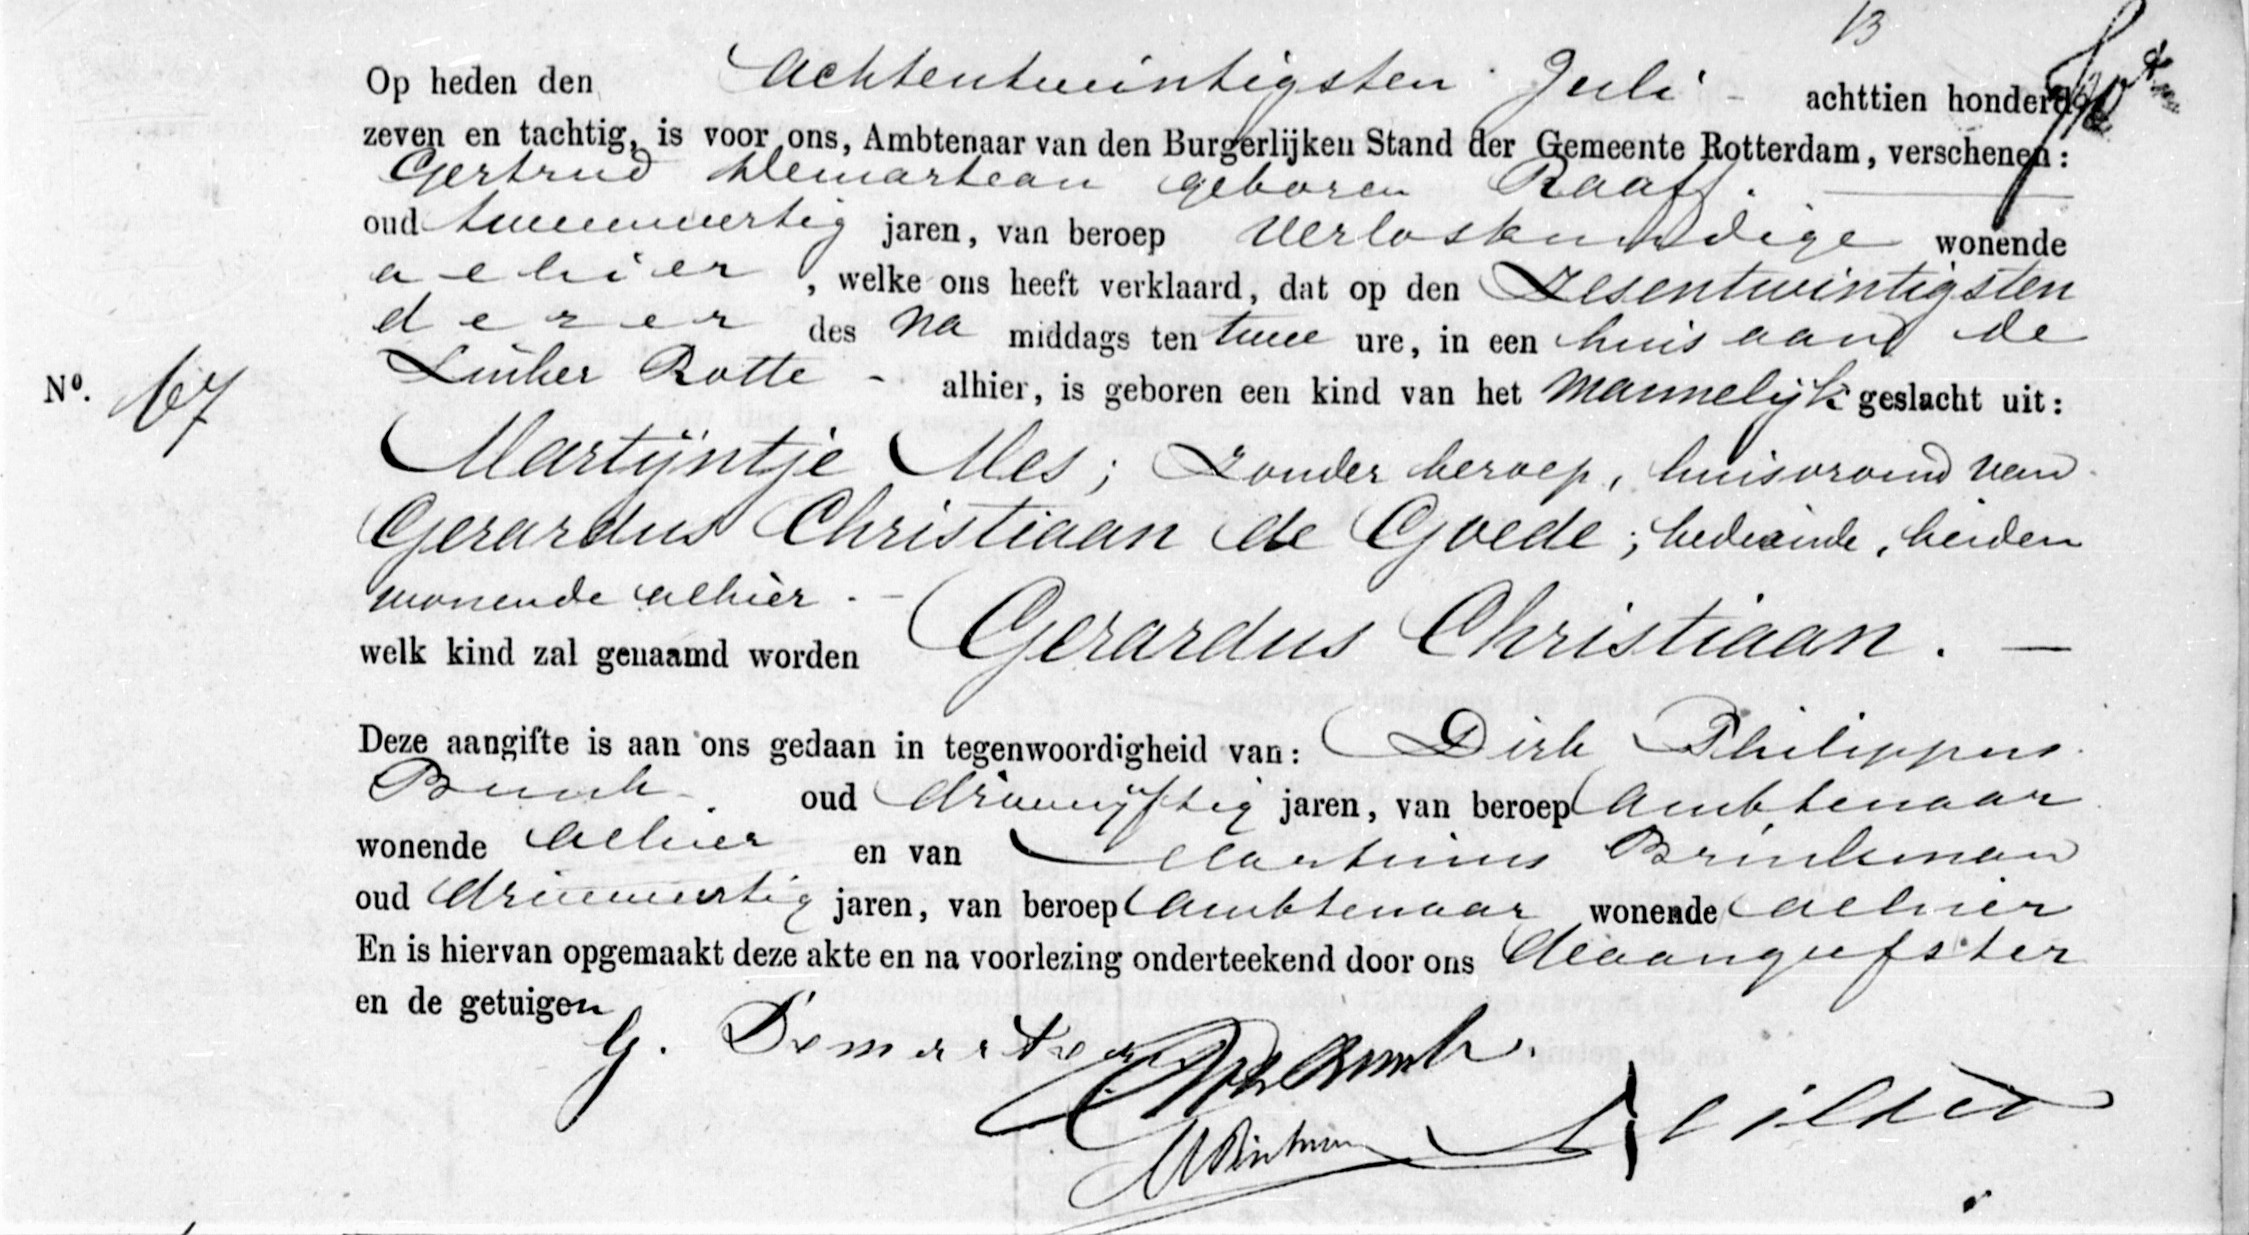 13
Op heden den Achtentwintigsten Juli - achttien honderd
zeven en tachtig, is voor ons, Ambtenaar van den Burgerlijken Stand der Gemeente Rotterdam, verschenen:
Gertrud Demarteau geboren Raaff.
oud tweeenveertig jaren, van beroep Verloskundige wonende
alhier, welke ons heeft verklaard, dat op den Zesentwintigsten
dezer des na middags ten twee ure, in een huis aan de
Linker Rotte - alhier, is geboren een kind van het Mannelijk geslacht uit:
No. 67
Martijntje Mes; zonder beroep, huisvrouw van
Gerardus Christiaan de Goede; bediende, beiden
wonende alhier. -
welk kind zal genaamd worden Gerardus Christiaan. -
Deze aangifte is aan ons gedaan in tegenwoordigheid van: Dirk Philippus
Bunk. oud drieenvijftig jaren, van beroep Ambtenaar
wonende alhier en van Martinus Brinkman
oud drieenveertig jaren, van beroep Ambtenaar wonende alhier
En is hiervan opgemaakt deze akte en na voorlezing onderteekend door ons de aangeefster
en de getuigen
G. Demarteau